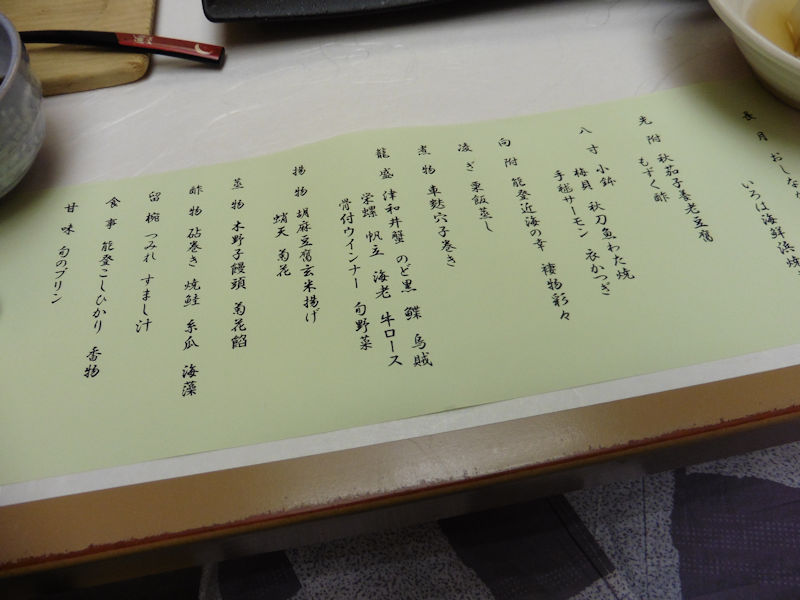 長月 おしなが
いろは海鮮浜焼
光附 秋茄子養老豆腐
もずく酢
八寸 小鉢 秋刀魚わた焼
梅貝 秋刀魚わた焼 衣かつぎ
手毬サーモン
向附 能登近海の幸 褄物彩々
凌ぎ 栗飯蒸し
煮物 車麩穴子巻き
籠盛 津和井蟹 のど黒 鰈 烏賊
栄螺 帆立 海老 牛ロース
骨付ウインナー 旬野菜
揚物 胡麻豆腐玄米揚げ
蛸天 菊花
蒸物 木野子饅頭 菊花餡
酢物 砧巻き 焼鮭 糸瓜 海藻
留椀 つみれ すまし汁
食事 能登こしひかり 香物
甘味 旬のプリン